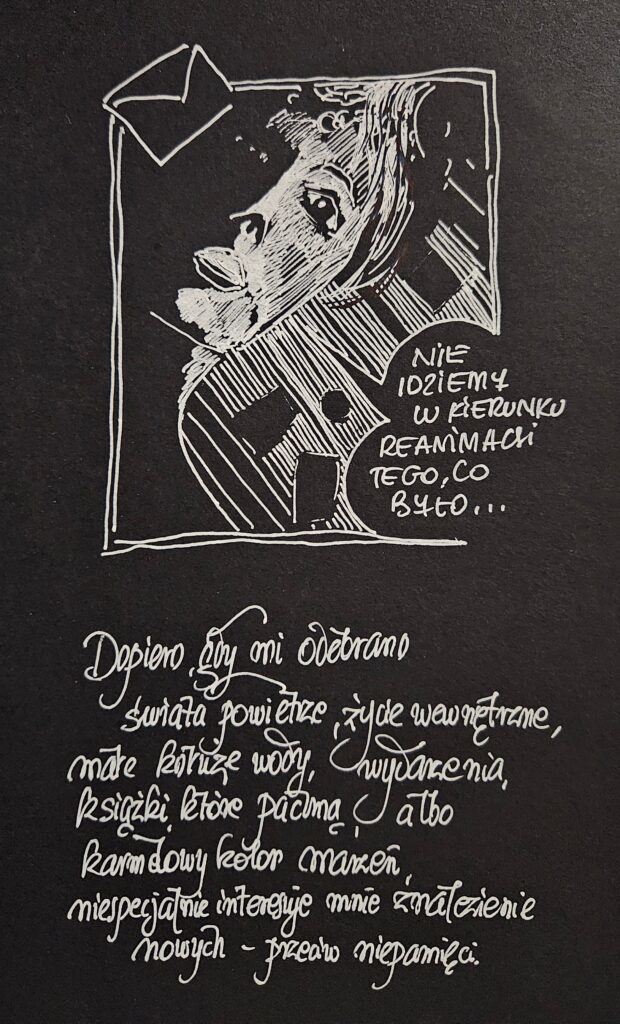 NIE
IDZIEMY
W KIERUNKU
REANIMACJI
TEGO, CO
BYŁO...
Dopiero, gdy mi odebrano
świata powietrze, życie wewnętrzne,
małe kałuże wody, wydarzenia,
książki, które pachną, albo
karmelowy kolor marzeń,
niespecjalnie interesuje mnie znalezienie
nowych - przeciw niepamięci.